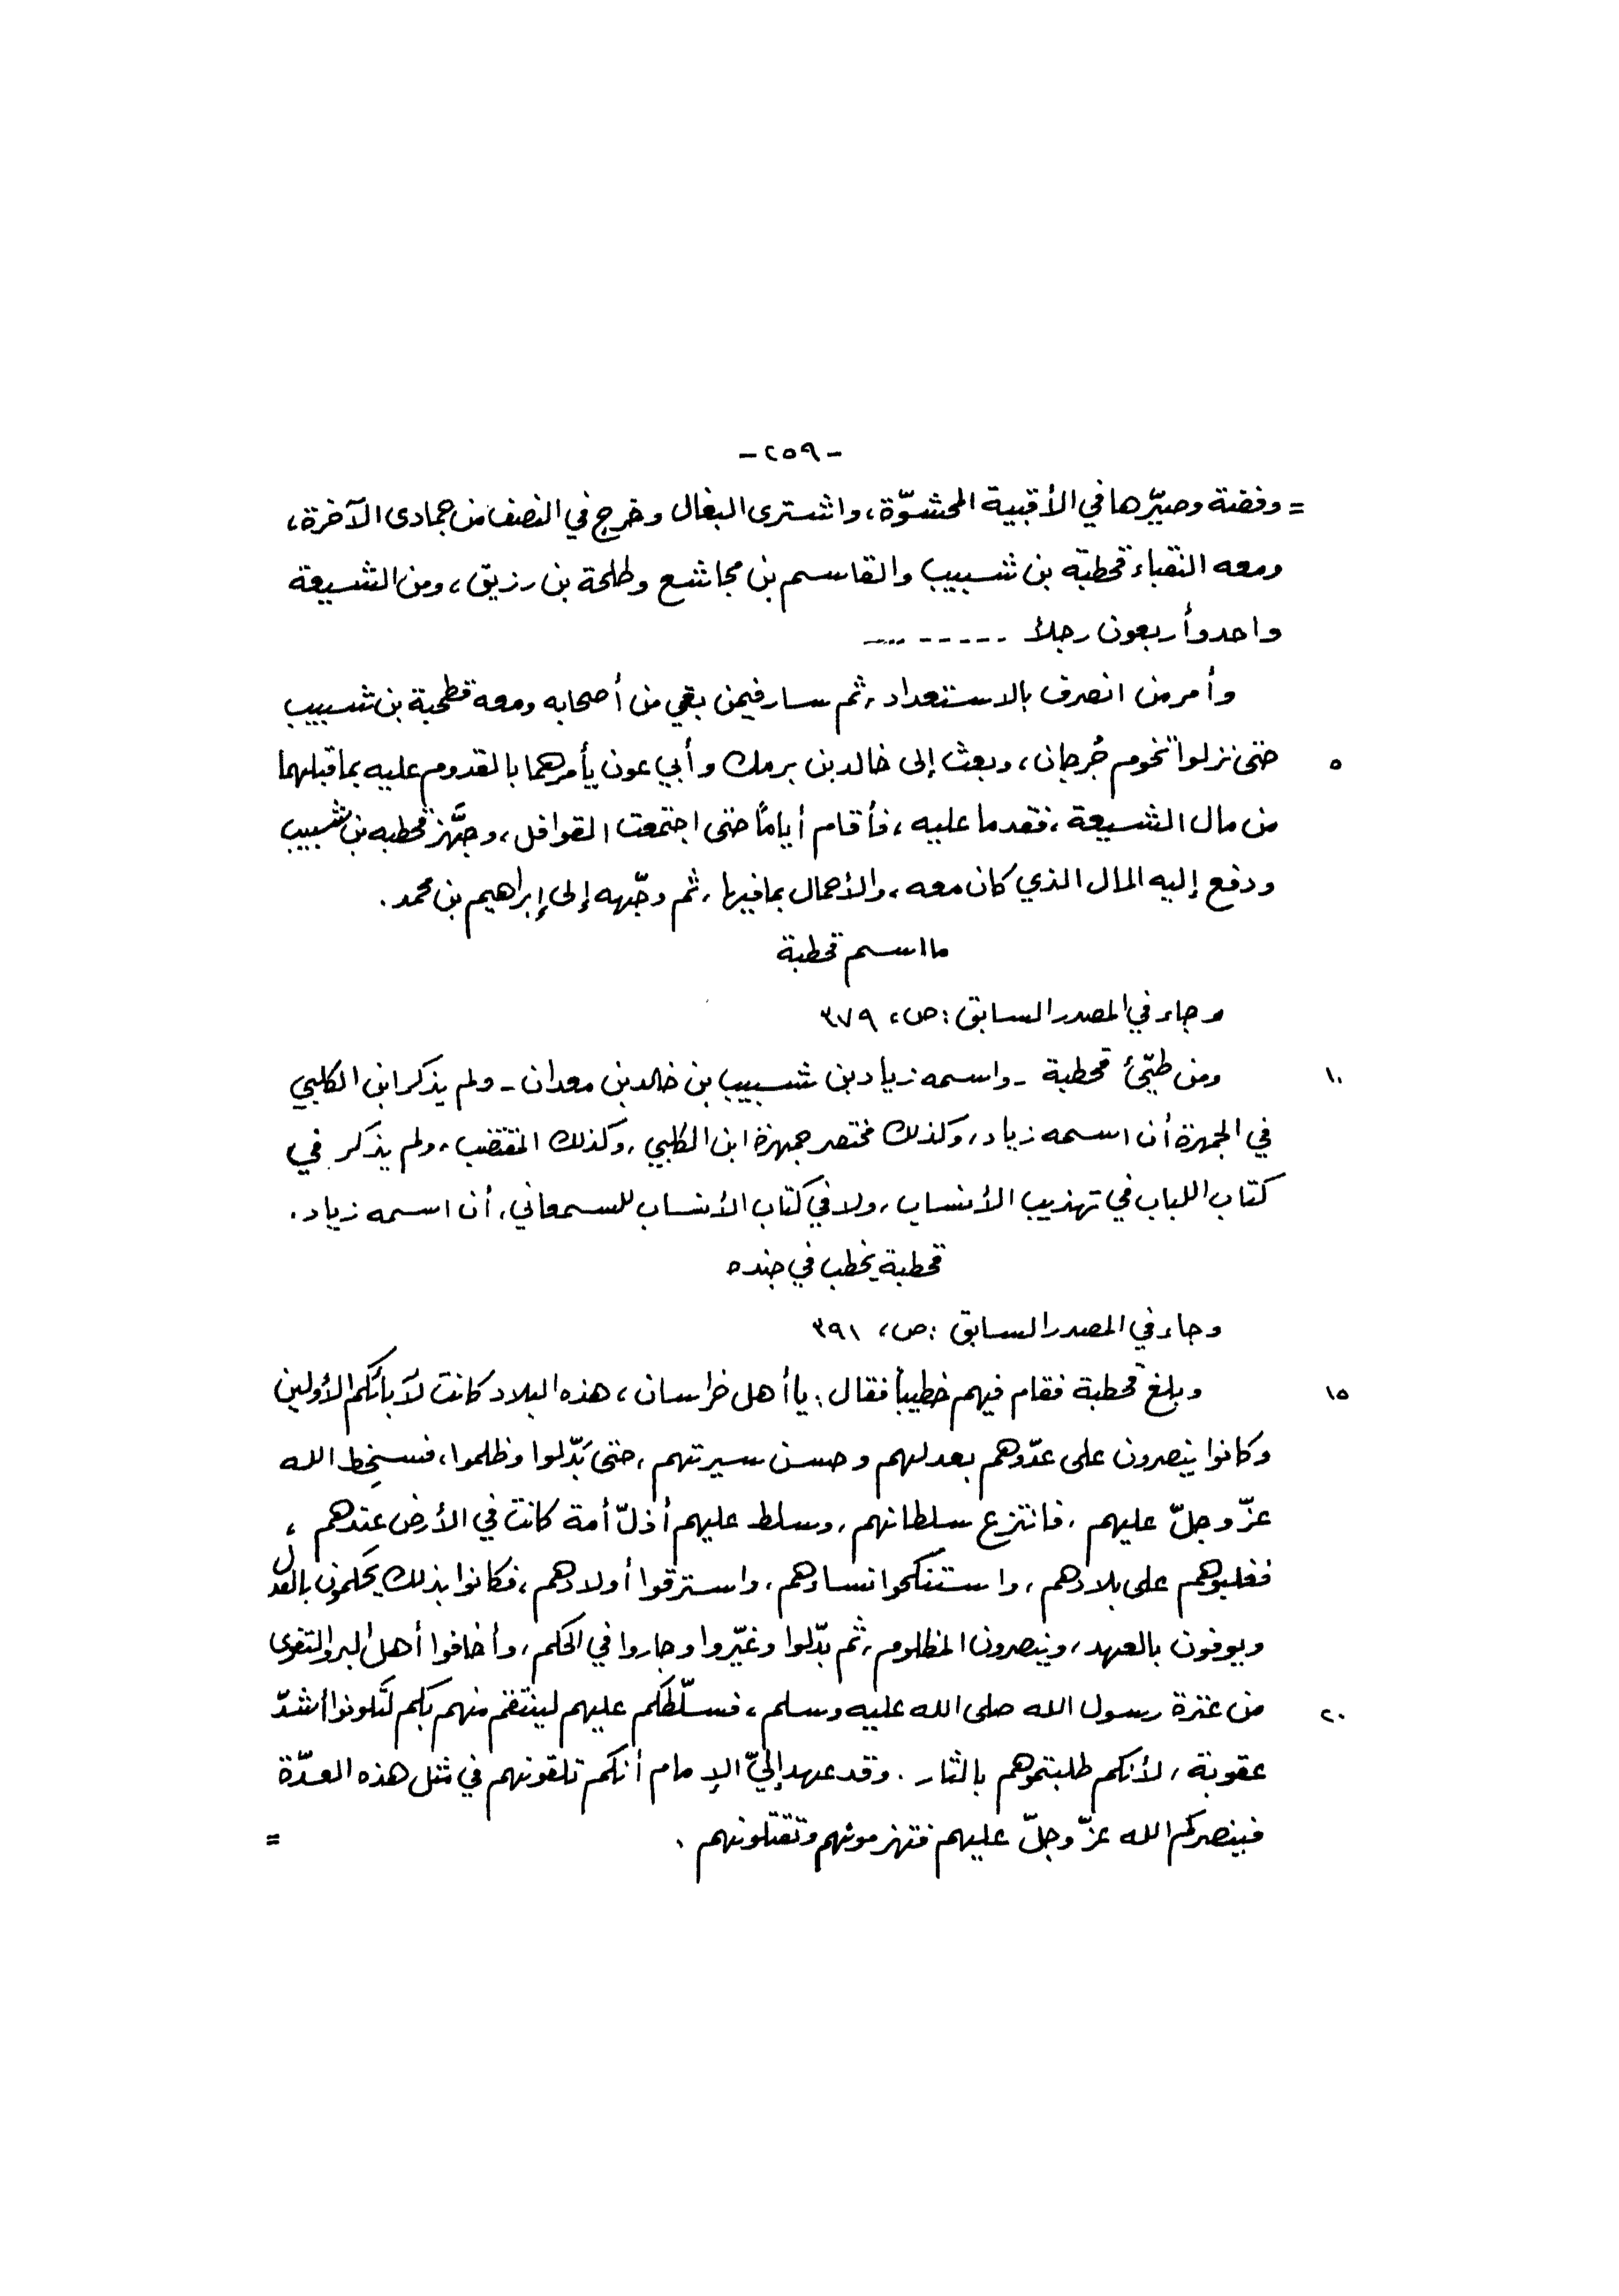 -٢٥٩-
= وفضة وصيّرها في الأقبية المحشوّة، واشترى البغال وخرج في النصف من جمادى الآخرة،
ومعه النقباء قحطبة بن شبيب والقاسم بن مجاشع وطلحة بن رزيق، ومن الشيعة
واحد وأربعون رجلاً ---------
وأمر من انصرف بالاستعداد، ثم سار فيمن بقي من أصحابه ومعه قطحبة بن شبيب
٥ حتى نزلوا تخوم جُرجان، وبعث إلى خالد بن برمك وأبي عون يأمرهما بالقدوم عليه بما قبلهما
من مال الشيعة، فقدما عليه، فأقام أياماً حتى اجتمعت القوافل، وجهَّز قحطبه بن شبيب
ودفع إليه المال الذي كان معه، والأحمال بما فيها، ثم وجّهه إلى إبراهيم بن محمد.
ما اسم قحطبة
وجاء في المصدر السابق: ص، ٣٧٩
١٠ ومن طيّئ قحطبة - واسمه زياد بن شبيب بن خالد بن معدان - ولم يذكر ابن الكلبي
في الجمهرة أن اسمه زياد، وكذلك مختصر جمهرة ابن الكلبي، وكذلك المقتضب، ولم يذكر في
كتاب اللباب في تهذيب الأنساب، ولا في كتاب الأنساب للسمعاني، أن اسمه زياد.
قحطبة يخطب في جنده
وجاء في المصدر السابق: ص، ٣٩١
١٥ وبلغ قحطبة فقام فيهم خطيباً فقال: يا أهل خراسان، هذه البلاد كانت لآبائكم الأولين
وكانوا ينصرون على عدّوهم بعدلهم وحسن سيرتهم، حتى بَدّلوا وظلموا، فسخِط الله
عزّ وجلّ عليهم، فانتزع سلطانهم، وسلط عليهم أذلّ أمة كانت في الأرض عندهم،
فغلبوهم على بلادهم، واستنكحوا نساءهم، واسترقوا أولادهم، فكانوا بذلك يحكمون بالعدل
ويوفون بالعهد، وينصرون المظلوم، ثم بدّلوا وغيّروا وجاروا في الحكم، وأخافوا أهل البر والتقوى
٢٠ من عترة رسول الله صلى الله عليه وسلم، فسلّطكم عليهم لينتقم منهم بكم لتكونوا أشدّ
عقوبة، لأنكم طلبتموهم بالثار. وقد عهد إليّ الإمام أنكم تلقونهم في مثل هذه العدّة
فينصركم الله عزّ وجلّ عليهم فتهزمونهم وتقتلونهم. =